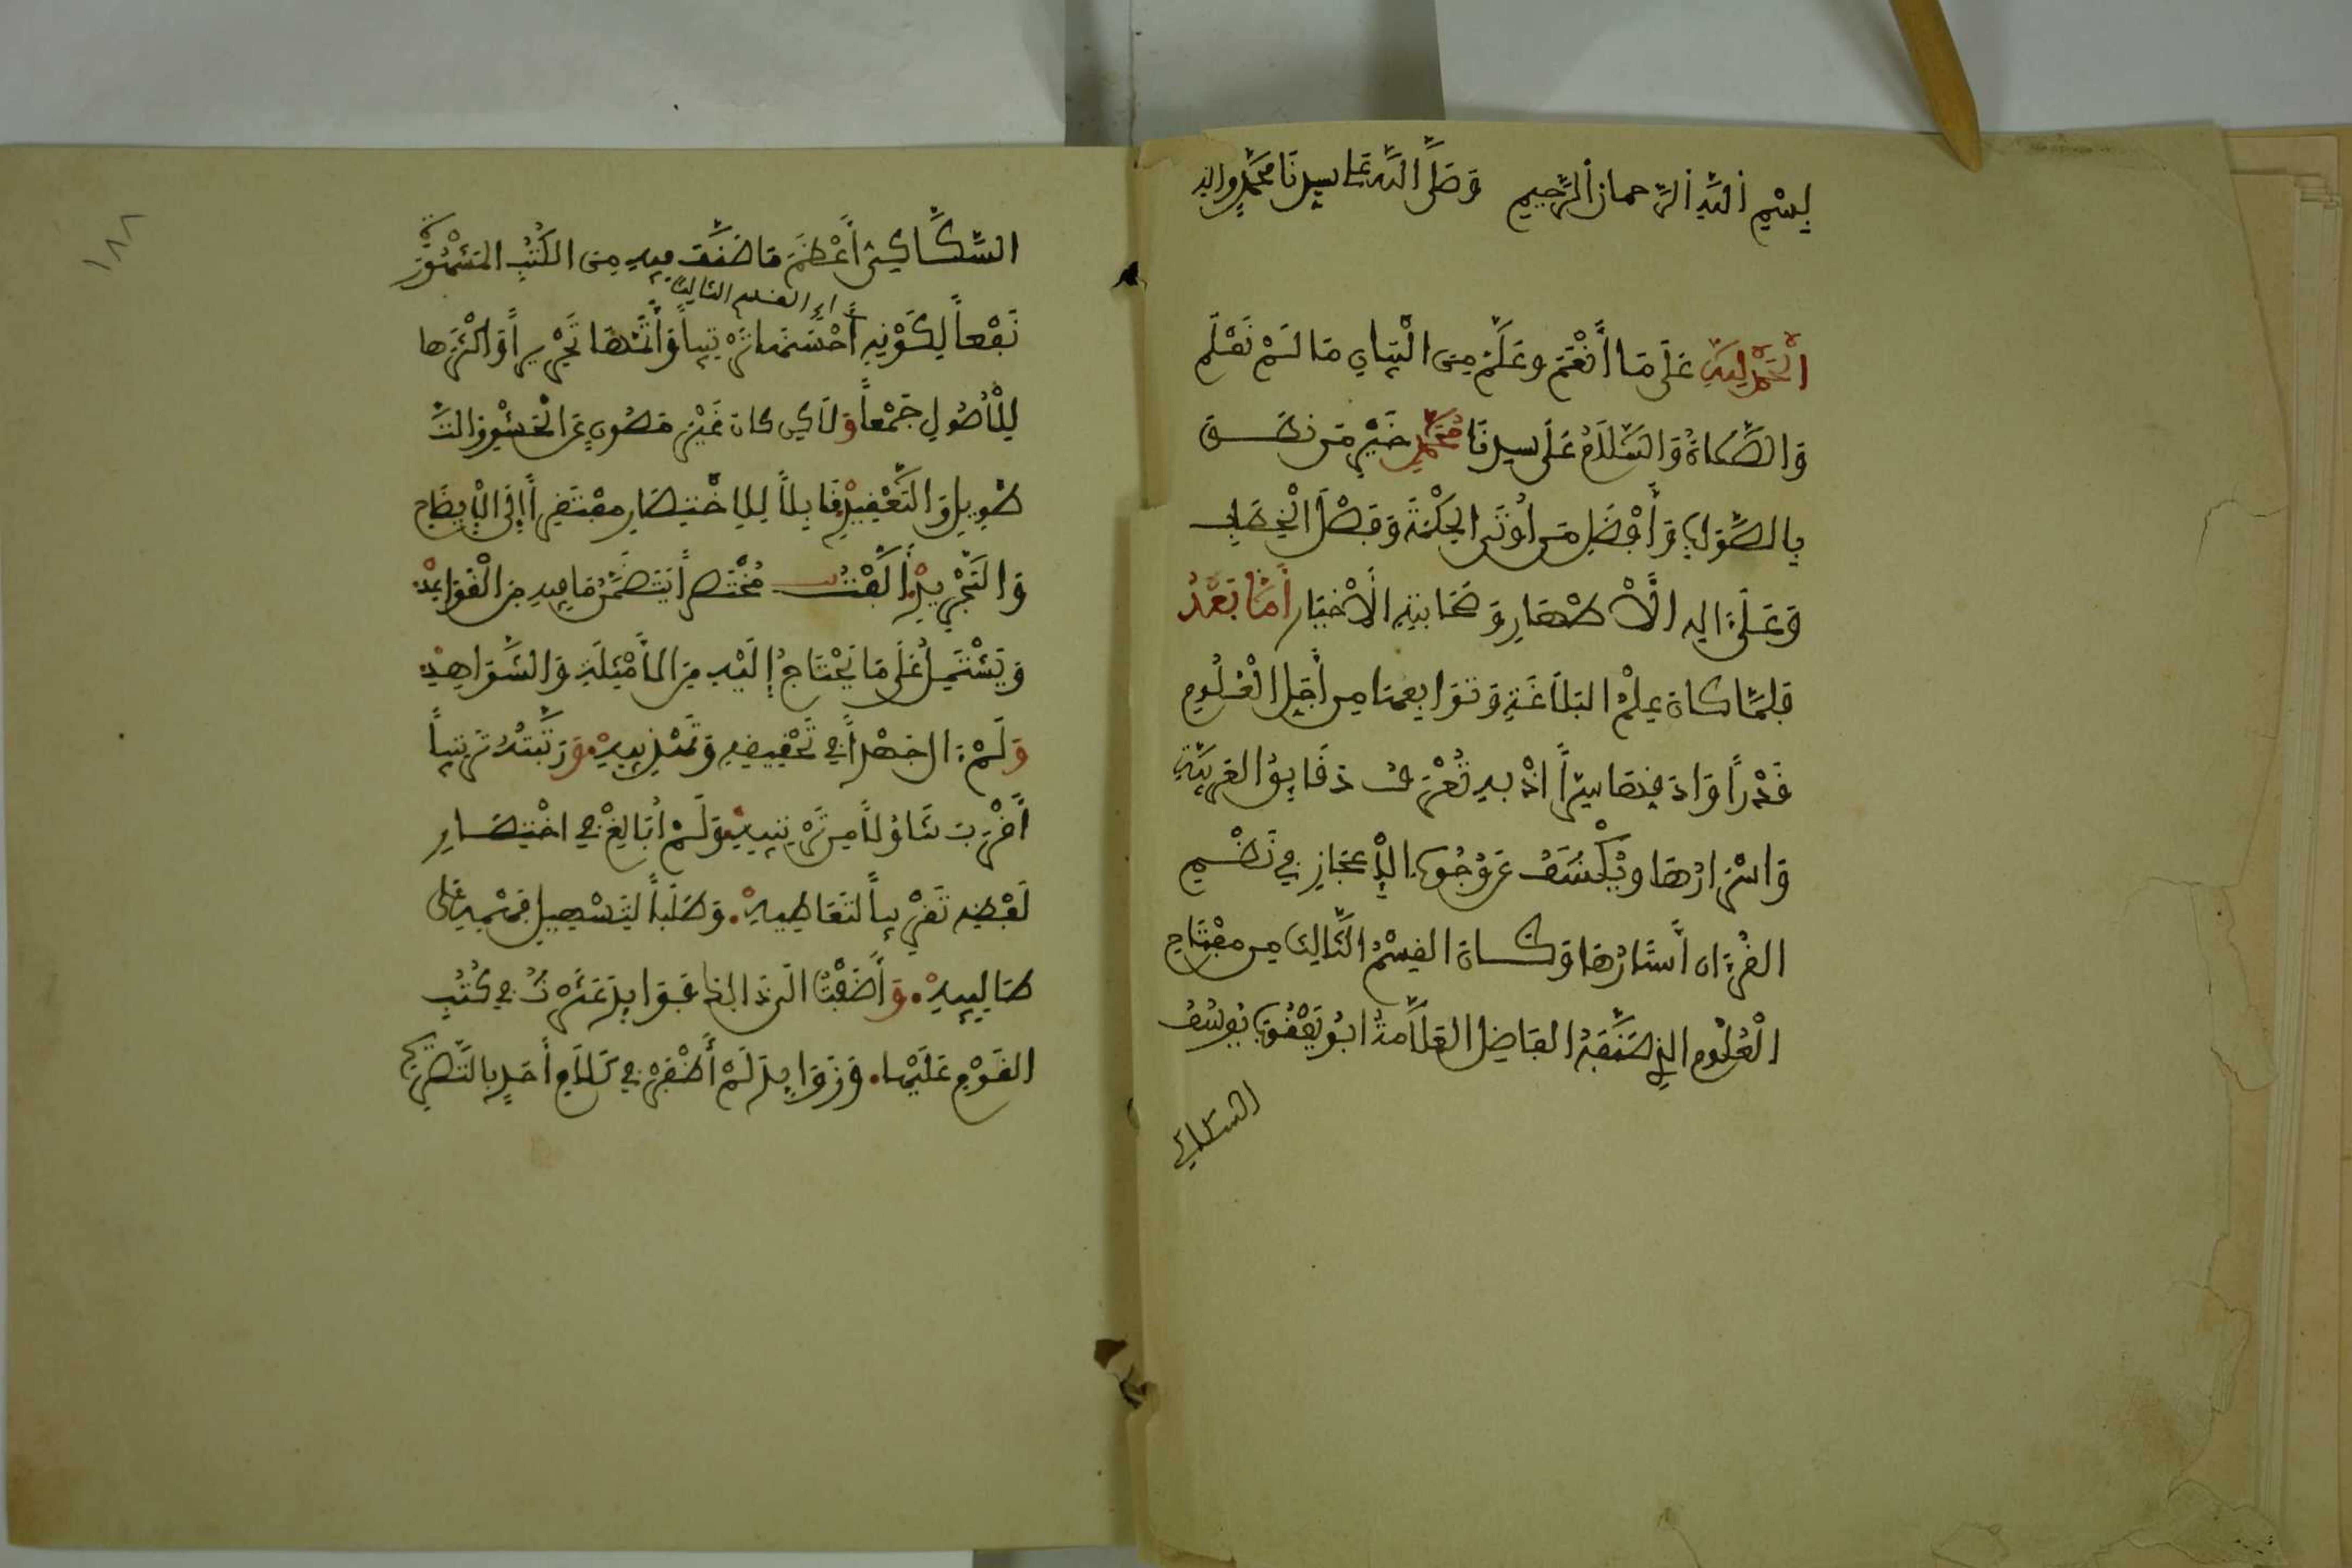 بِسْمِ اللَّهِ الرَّحمانِ الرَّحِيمِ وَصَلَّى اللَّه عَلَى سيدنَا مُحَمَّدٍ وءاله
الْحَمْدُ لِلَّهِ عَلَى مَا أَنْعَمَ وعَلَّمَ مِنَ الْبَيَانِ مَا لَمْ نَعْلَم
وَالصَّلَاةُ وَالسَّلَامُ عَلَى سيدنَا مُحَمَّدٍ خَيْرِ مَن نَطَقَ
بِالصَّوَابِ وَأَفْضَلِ مَن أُوتَى الحِكْمَةَ وَفَصْلَ الْخِطَابِ
وَعَلَىءَالِهِ الأَطْهَارِ وَصَحَابَتِهِ الأَخْيَارِ أَمَّا بَعْدُ
فَلَمَّا كَانَ عِلْمُ البَلَاغَةِ وَتَوَابِعهَا مِن أَجَلِّ الْعُلُومِ
قَدْراً وَادَقِّهَا سِرّاً إذْ بِهِ تُعْرَفُ دَقَايِقُ العَرَبِيَّةِ
وَاسْرَارُهَا ويُكْشَفُ عَن وُجُوهِ الإِعْجَازِ فِي نَظْمِ
القُرْءَانِ أَسْتَارُهَا وَكَانَ القِسْمُ الثَّالِثُ مِن مِفْتَاحِ
الْعُلُومِ الذِي صَنَّفَهُ الفَاضِلُ العَلَّامَةُ ابُو يَعْقُوبَ يُوسُفُ
السكاكي
١٨٨
السَّكَّاكِيُّ أَعْظَمَ مَا صُنِّفَ فِيهِ مِنَ الكُتُبِ المَشْهُورَةِ
اي القسم الثالث
نَفْعاً لِكَوْنِهِ أَحْسَنهَا تَرْتِيباً وَأَتَمّهَا تَحْرِيراً وَاكْثَرها
لِلْأُصُولِ جَمْعاً وَلَكِن كَانَ غَيْرَ مَصُونٍ عَنِ الْحَشْوِ وَالتَّ
طْوِيلِ وَالتَّعْقِيدِ قَابِلاً لِلِاخْتِصَارِ مُفْتَقِراً إلَى الْإِيضَاحِ
وَالتَّجْرِيدِ أَلَّفْتُ مُخْتَصَراً يَتَضَمَّنُ مَا فِيهِ مِنَ الْقَوَاعِدْ
وَيَشْتَمِلُ عَلَى مَا يُحْتَاجُ إلَيْهِ مِنَ الأَمْثِلَةِ وَالشَّوَاهِدْ
وَلَمْ ءَالُ جَهْداً فِي تَحْقِيقِهِ وَتَهْذِيبِهِ وَرَتَّبْتُهُ تَرْتِيباً
أَقْرَبَ تَنَاوُلاً مِن تَرْتِيبِهِ وَلَمْ أُبَالِغْ فِي اخْتِصَارِ
لَفْظِهِ تَقْرِيباً لتَعَاطِيهِ وَطَلَباً لتَسْهِيلِ فَهْمِهِ عَلَى
طَالِبِيهِ وَأَضَفْتُ الَى ذَالِكَ فَوَايِدَ عَثَرْتُ فِي كُتُبِ
القَوْمِ عَلَيْهَا وَزَوَايِدَ لَمْ أَظْفَرْ فِي كَلَامِ أَحَدٍ بِالتَّصْرِيحِ